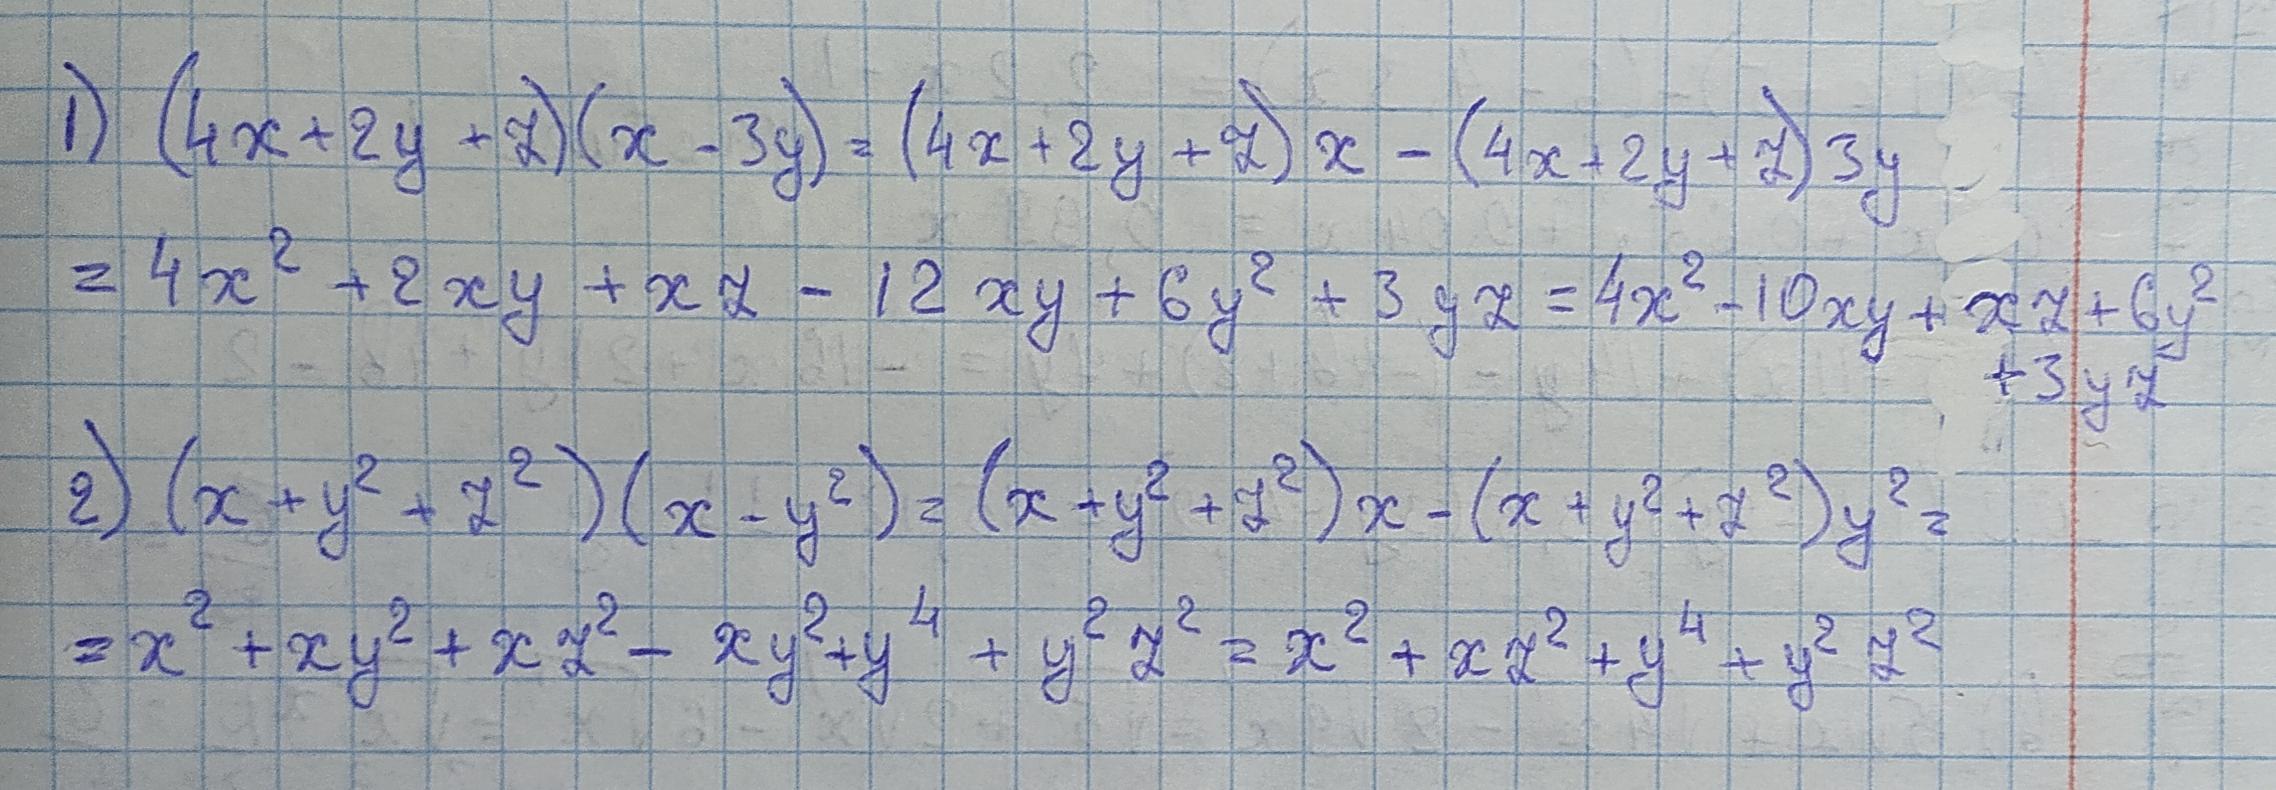 1) (4x+2y+z)(x-3y)=(4x+2y+z)x-(4x+2y+z)3y
=4x²+2xy+xz-12xy+6y²+3yz=4x²-10xy+xz+6y²
+3yz
2) (x+y²+z²)(x-y²)=(x+y²+z²)x-(x+y²+z²)y²=
=x²+xy²+xz²-xy²+y⁴+y²z²=x²+xz²+y⁴+y²z²